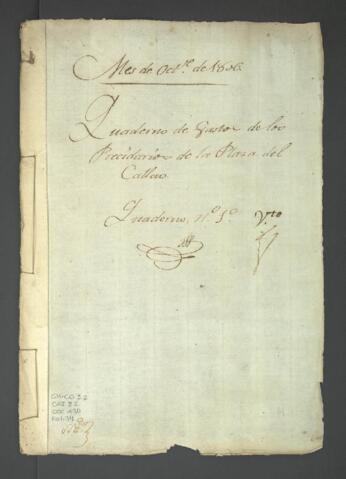 Mes de Oct.re de 1806.
Quaderno de Gastos de los
Precidarios de la Plaza del
Callao
Quaderno, n.º 1º V.to
GM-CO 32
CAJ 32
DOC 430